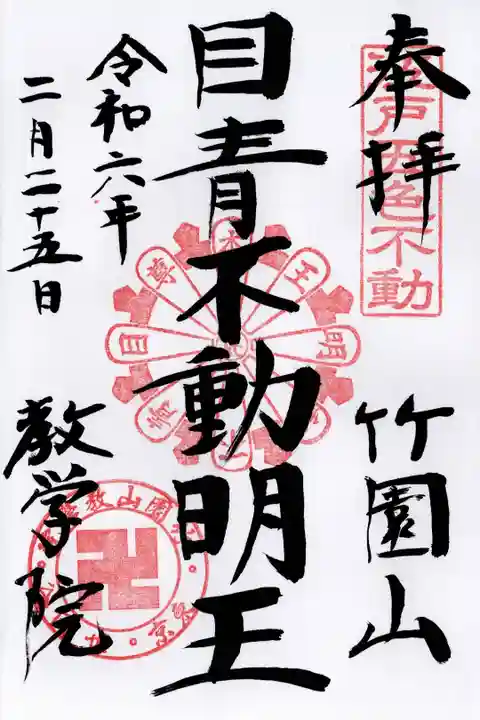 奉拝
江戸五色不動
竹園山
目青不動明王
令和六年
二月二十五日
教学院